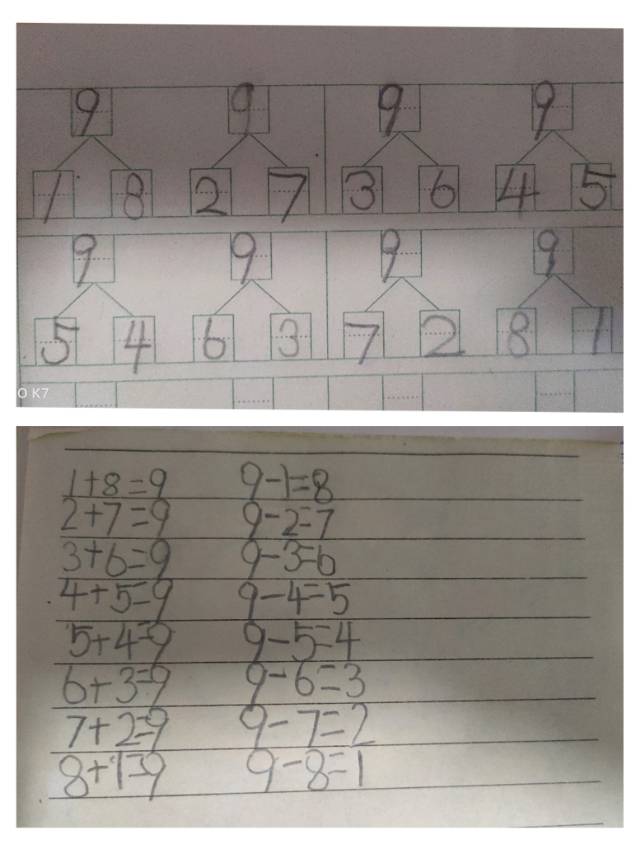 9 9 9 9
1 8 2 7 3 6 4 5
9 9 9 9
5 4 6 3 7 2 8 1
O K7
1+8=9 9-1=8
2+7=9 9-2=7
3+6=9 9-3=6
4+5=9 9-4=5
5+4=9 9-5=4
6+3=9 9-6=3
7+2=9 9-7=2
8+1=9 9-8=1